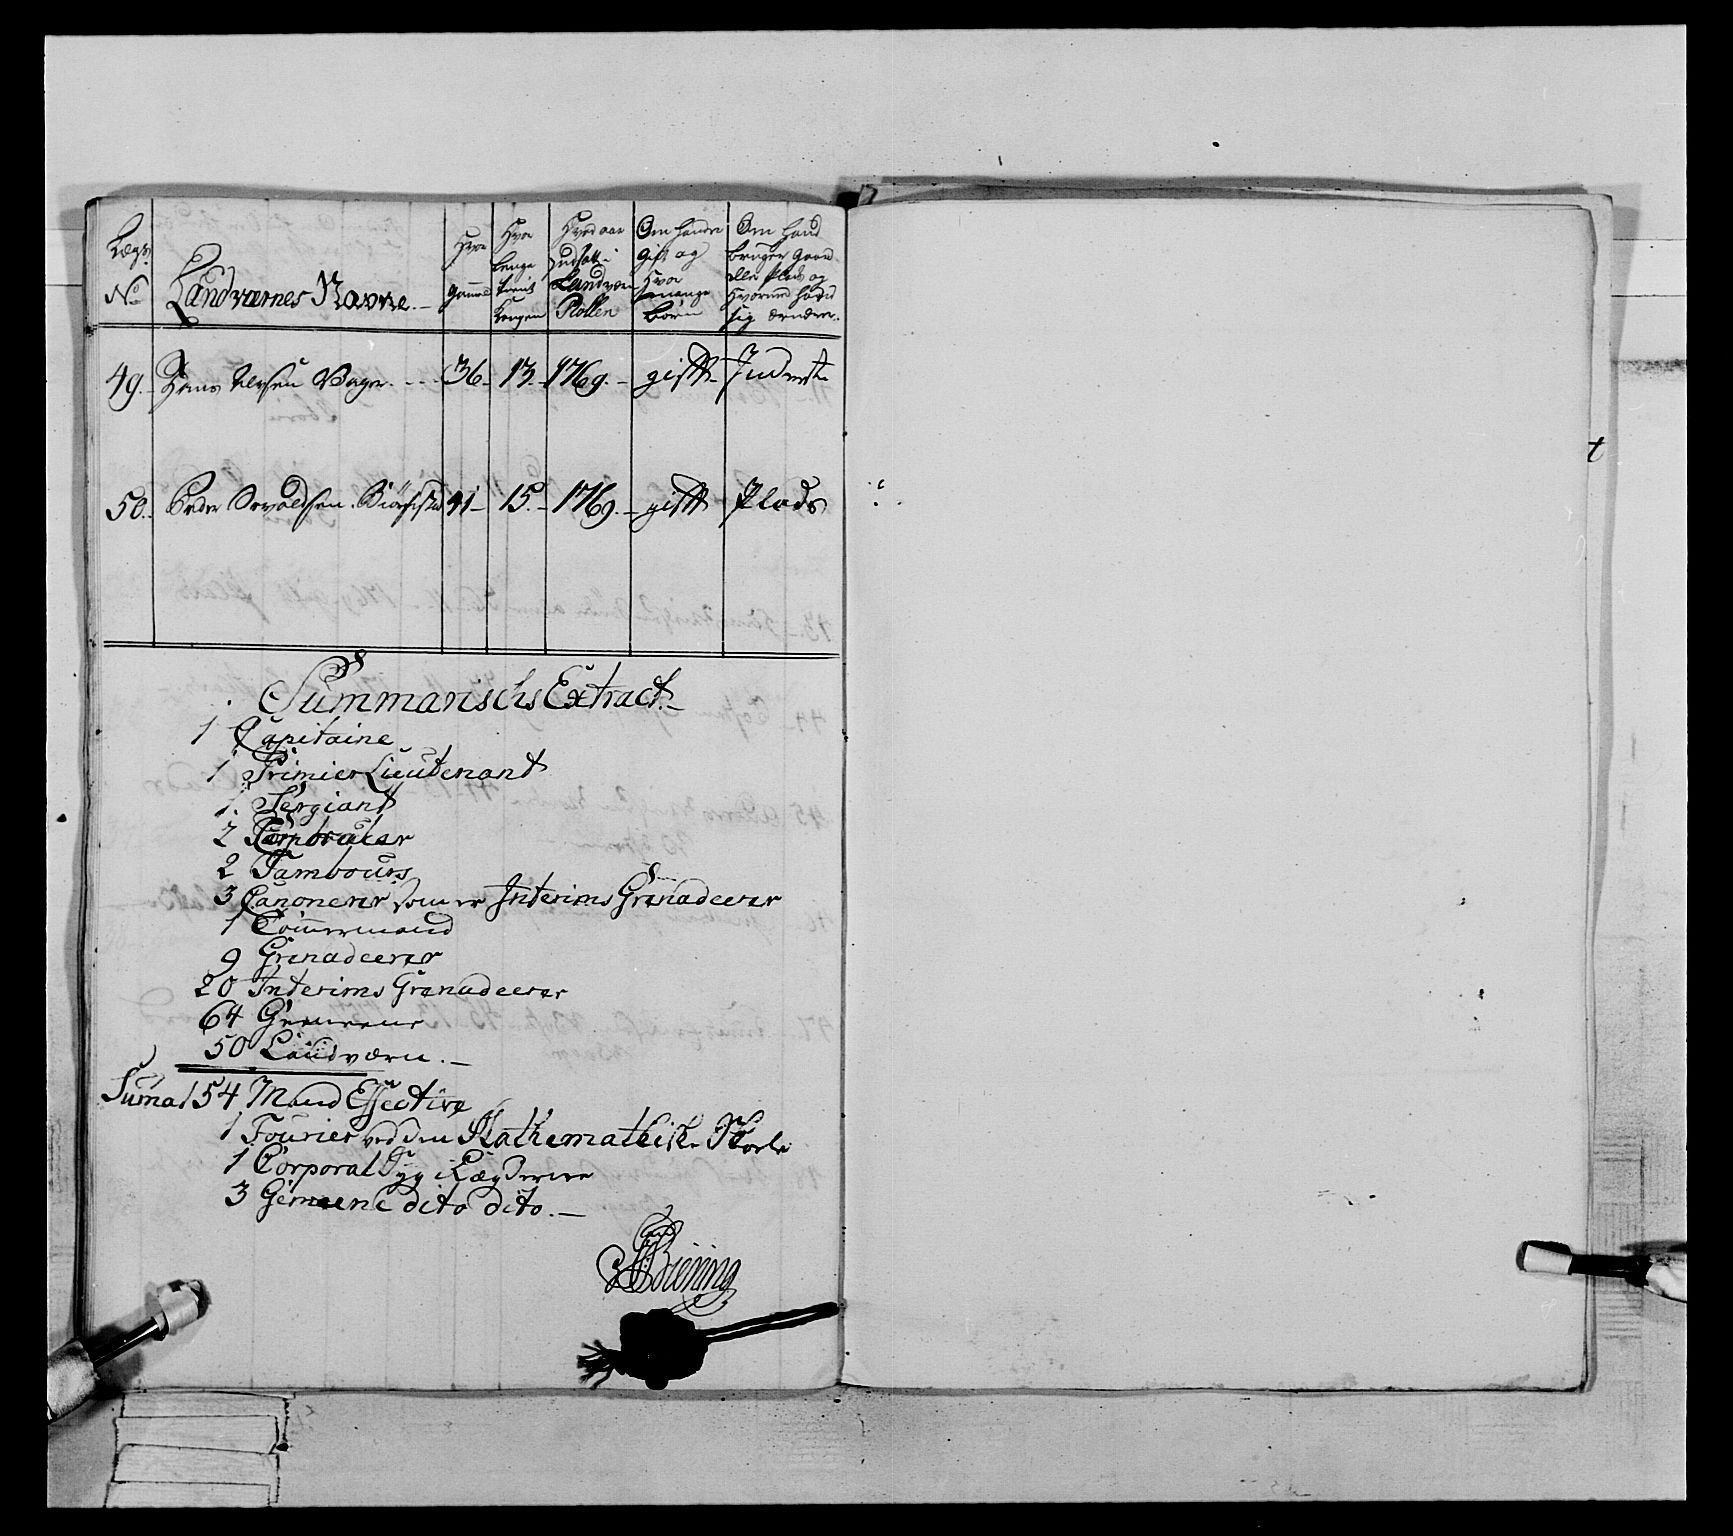 Lægs No
Landværnes Navne.
Hvor gammel
Hvor lenge tient Kongen
Hvad aar udsatt i Landværn Rollen
Om hand er gift og hvor mange børn
Om hand bruger gaard eller plads og hvormed hand sig ernærer.
49. Hans Olsen 36. 13. 1769. gifft Inderste
50. Peder 41 15. 1769. gifft Plads
Summarischs Extract.
1 Capitaine
1 Primier Lieutenant
1. Sergiant
2 Corporaler
2 Tambours
3 Canonerer som er Interims Grenadeerer
1 Tømmermand
9 Grenadeerer
20 Interims Grenadeerer
64 Gemeene
50 Landværn.
Suma 154 Mand Effective
1 Fourier ved den Mathematisk Skole
1 Corporal Syg i Lægderne
3 Gemeene dito dito.